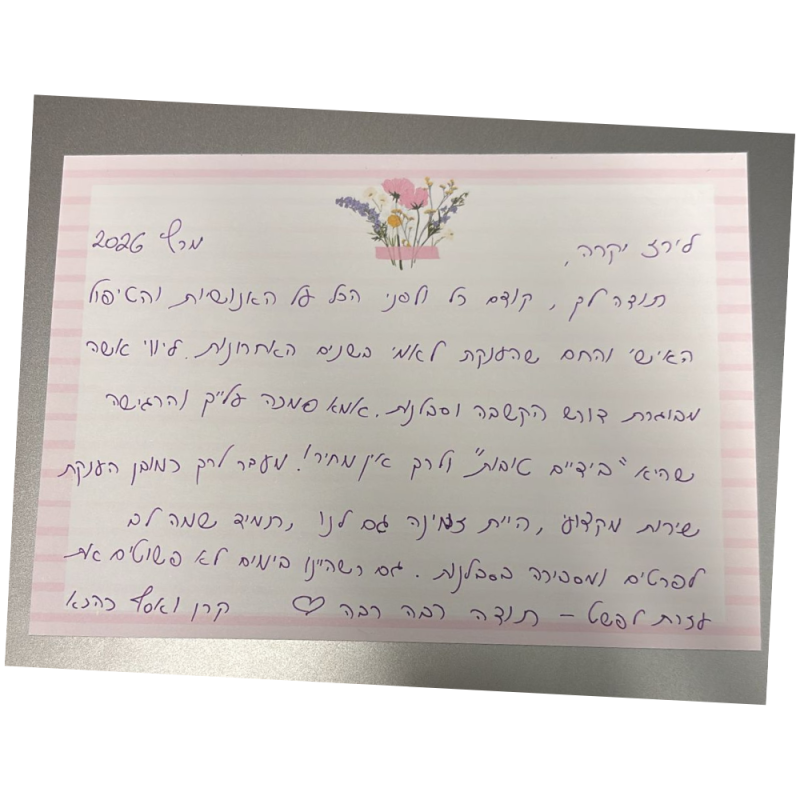 לירז יקרה, מרץ 2026
תודה לך, קודם כל ולפני הכל על האנושיות והטיפול
האישי והחם שהענקת לאמי בשנים האחרונות. ליווי אשה
מבוגרת דורש הקשבה וסבלנות. אמא סמכה עלייך והרגישה
שהיא "בידיים טובות" ולכך אין מחיר! מעבר לכך כמובן הענקת
שירות מקצועי, היית זמינה גם לנו, תמיד שמה לב
לפרטים ומסבירה בסבלנות. גם כשהיינו בימים לא פשוטים את
עזרת לפשט – תודה רבה רבה ♡ קרן ואסף